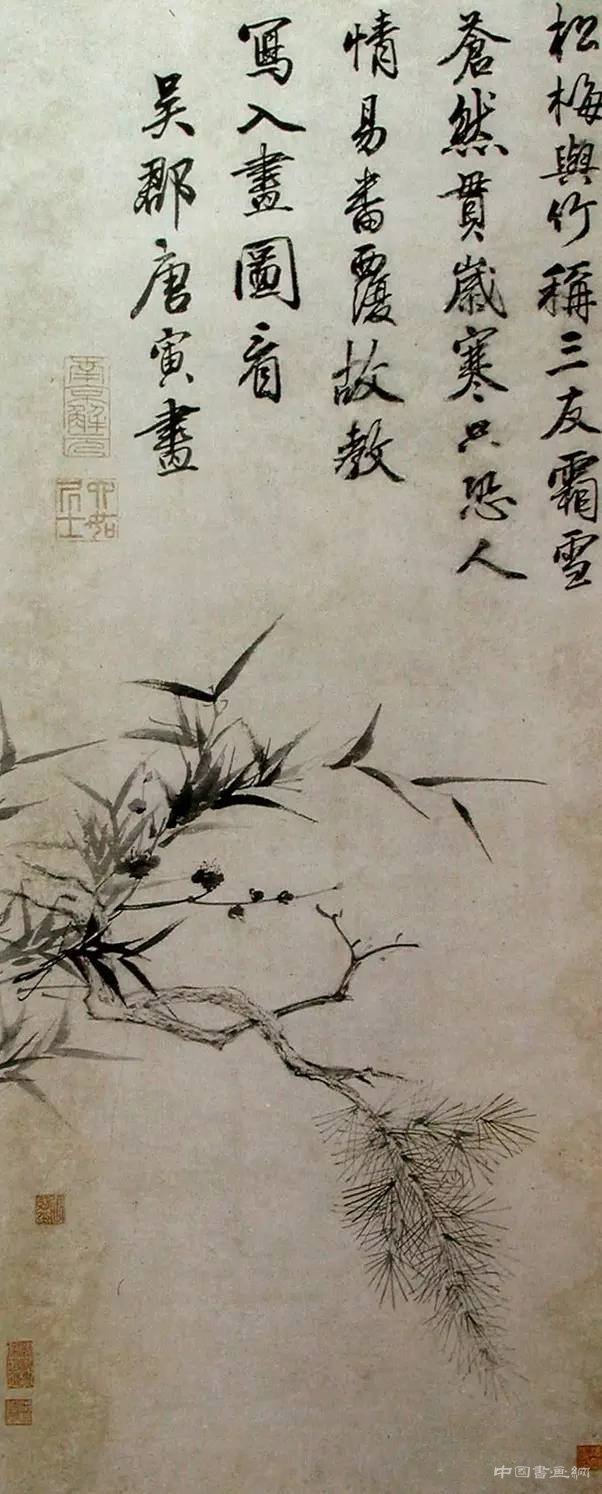 松梅與竹稱三友霜雪
蒼然貫歲寒只恐人
情易畨覆故教
寫入畫圖看
吳郡唐寅畫
南京解元
六如居士
中国書画網